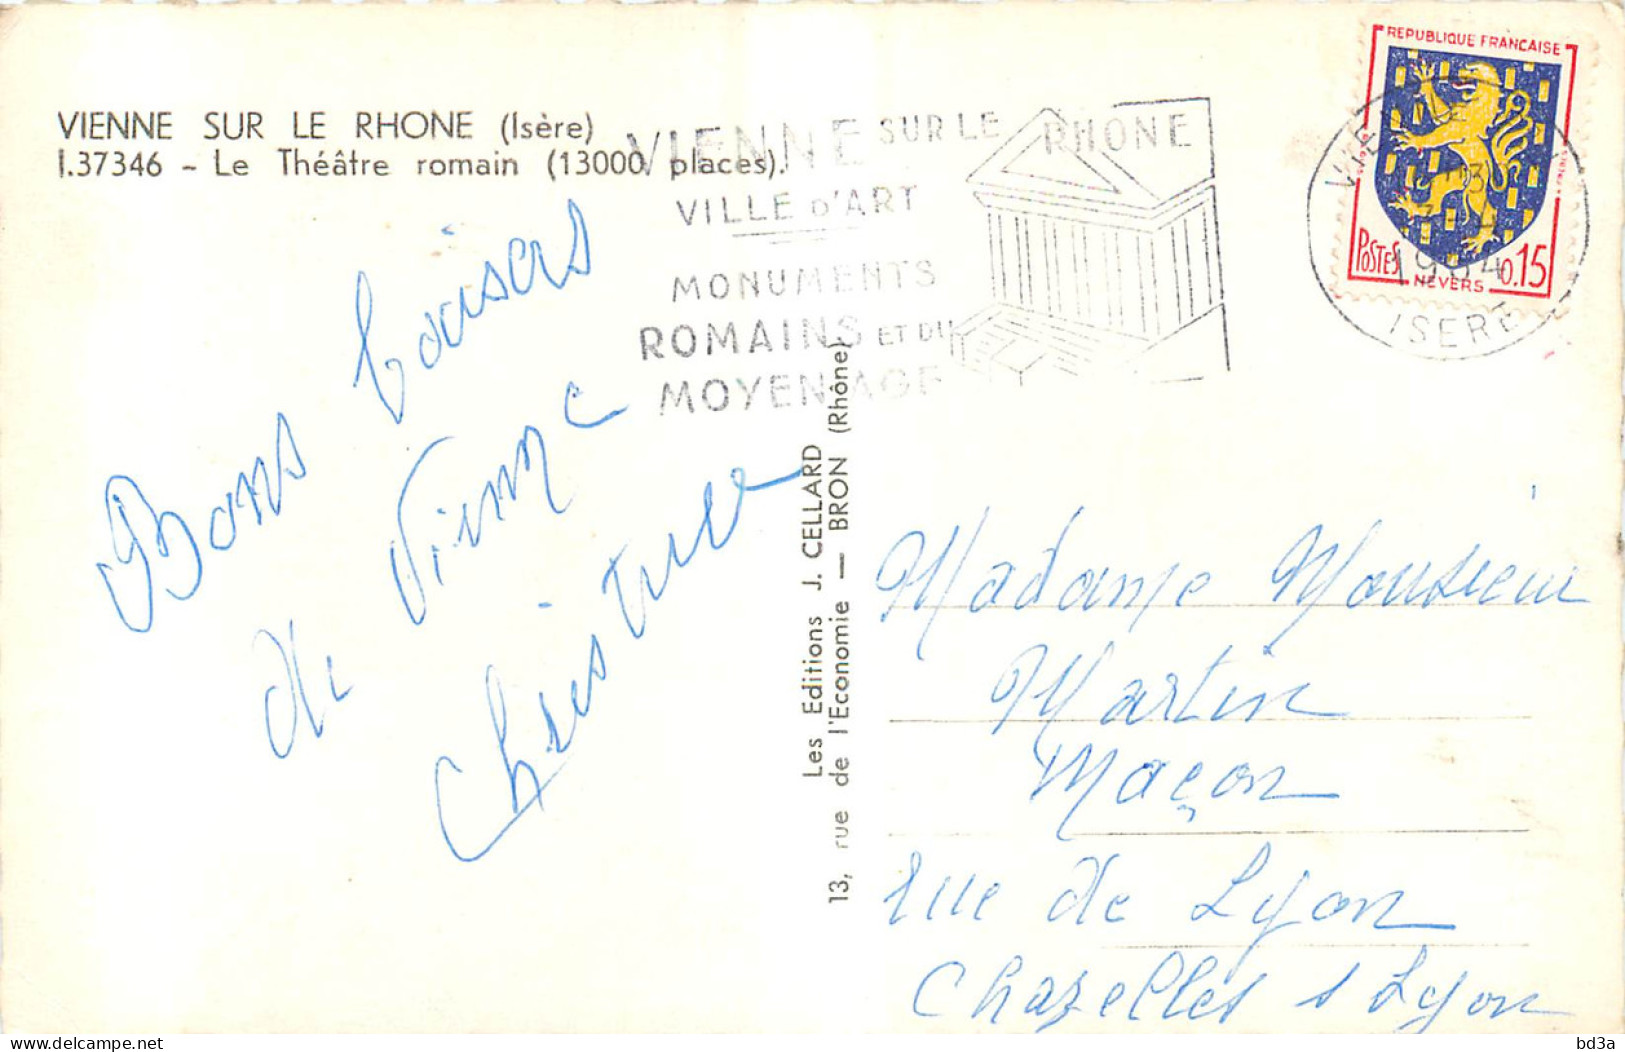 VIENNE SUR LE RHONE (Isère)
I.37346 – Le Théâtre romain (13000 places).
VIENNE SUR LE RHONE
VILLE D'ART
MONUMENTS
ROMAINS ET DU
MOYEN AGE
REPUBLIQUE FRANCAISE
POSTES
0.15
NEVERS
1964
ISERE
Bons baisers
de Vienne
Christine
Les Editions J. CELLARD
13, rue de l'Economie — BRON (Rhône)
Madame Monsieur
Martin
Maçon
rue de Lyon
Chazelles s Lyon
bd3a